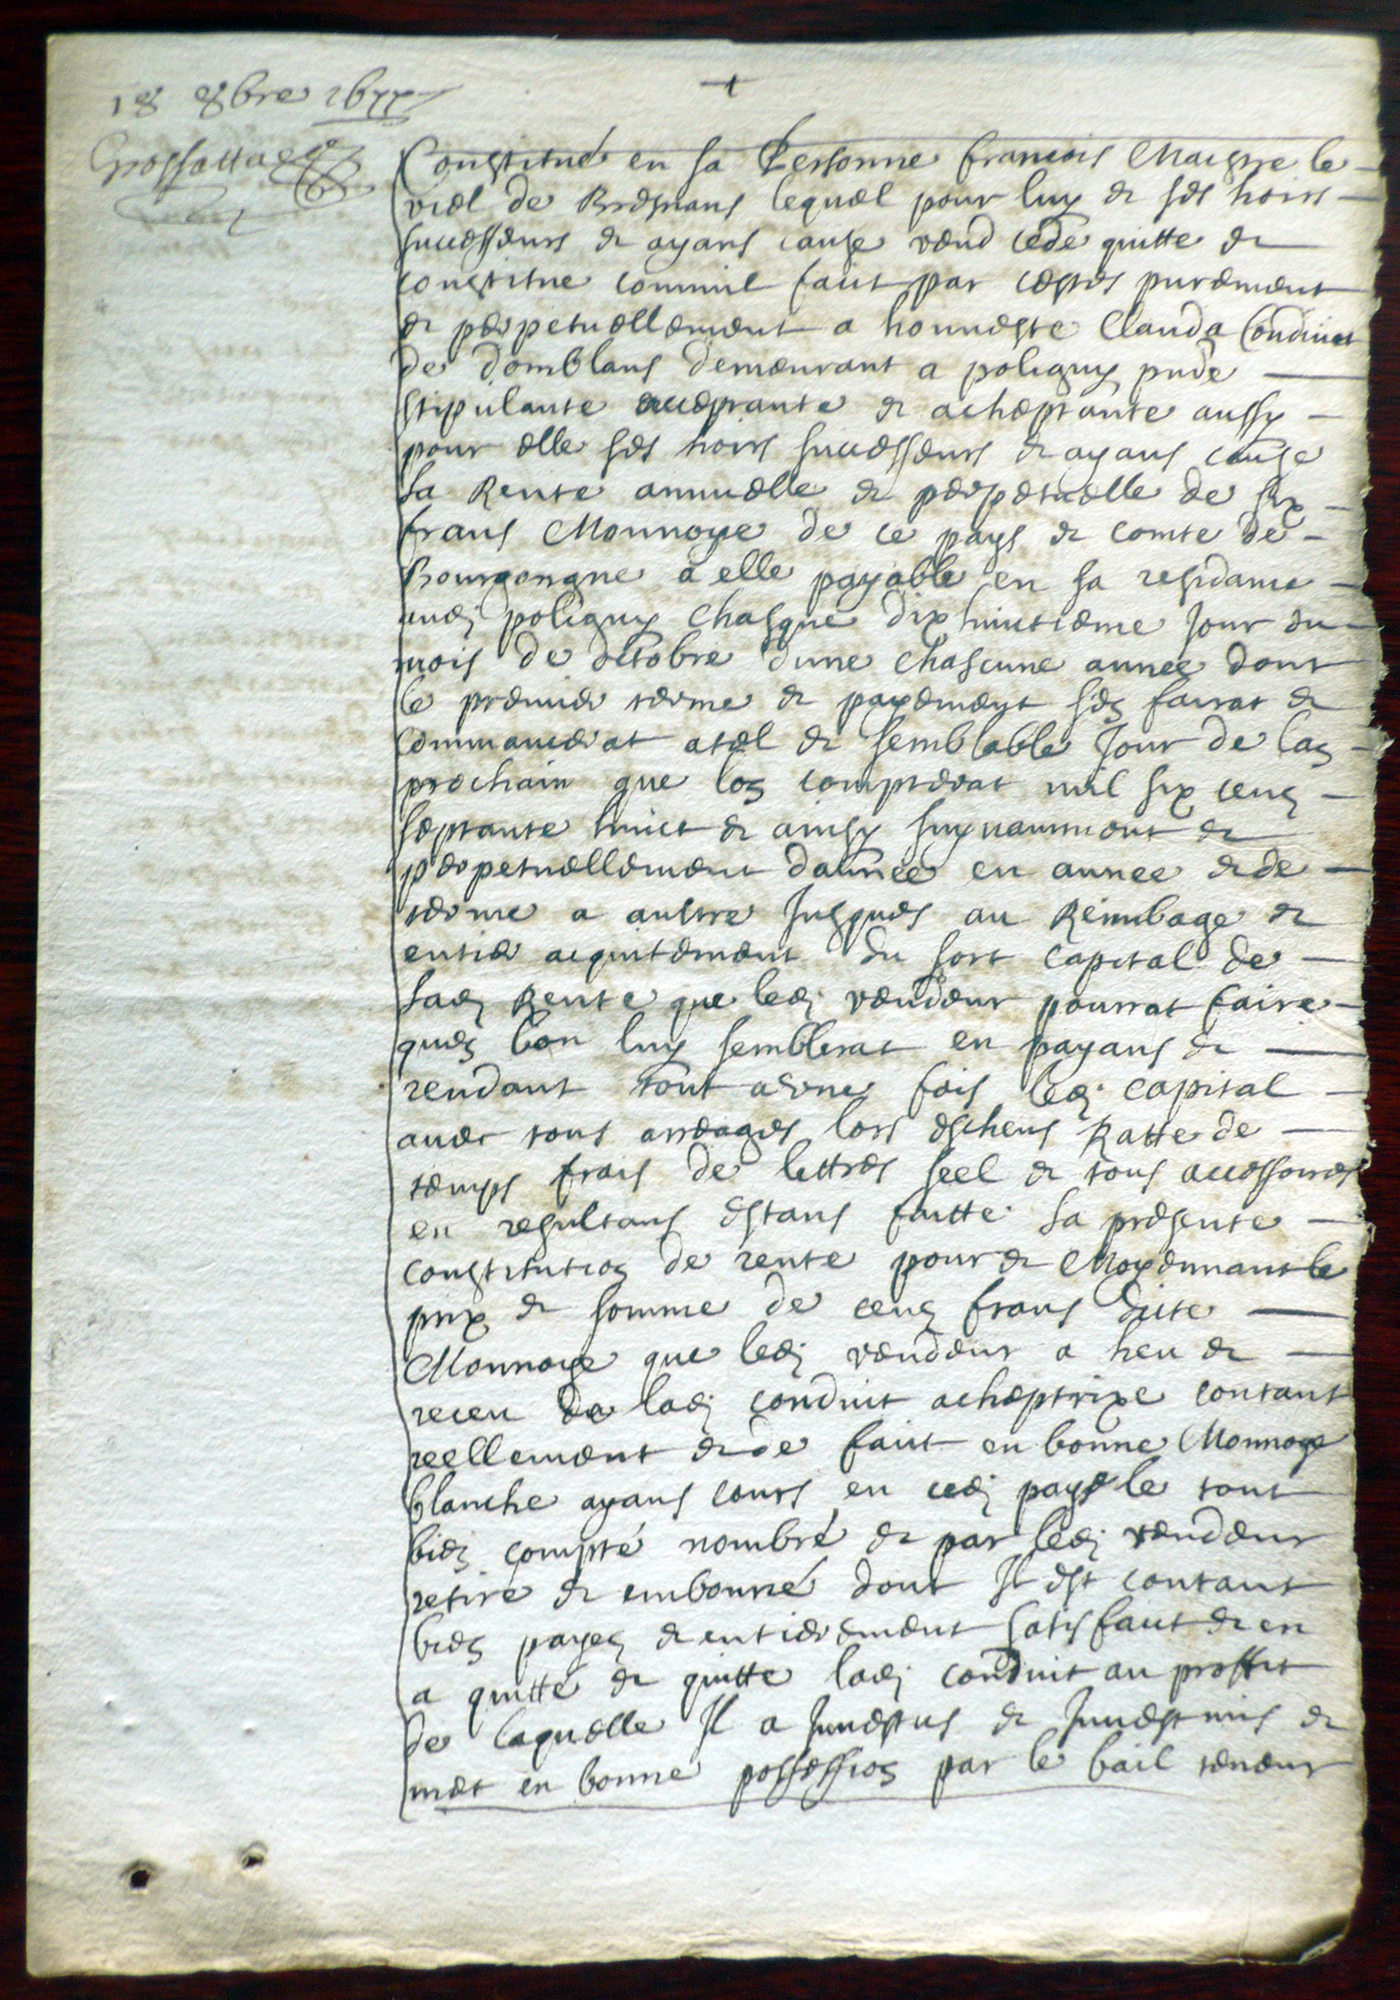 18 8bre 1677
Grossatta
Constitué en sa Personne francois Maigre le
viel de Bresnans lequel pour luy & ses hoirs
successeurs & ayans cause vend cede quitte &
constitue comm'il fait par cestes purement
& perpetuellement a honneste Clauda Conduict
de domblans demeurant a poligny pnde
stipulante acceptante & acheptante aussy
pour elle ses hoirs successeurs & ayans cause
La Rente annuelle & perpetuelle de six
frans Monnoye de ce pays & comte de
Bourgongne a elle payable en sa residance
audi poligny chasque dixhuictieme jour du
mois de octobre d'une chascune année dont
le premier terme & payement sen fairat &
commancerat a tel & semblable jour de lan
prochain que lon compterat mil six cens
septante huict & ainsy suyvamment &
perpetuellement d'année en annee & de
terme a aultre jusques au Rémbage &
entier acquitement du sort capital de
ladi Rente que ledi vendeur pourrat faire
quen bon luy semblerat en payans &
rendant tout a vne fois ledi capital
avec tous arreages lors escheus Ratte de
temps frais de lettres seel & tous accessoires
en resultans estans faitte La presente
constitution de rente pour & Moyennant le
prix & somme de cens frans dicte
Monnoye que ledi vendeur a heu &
receu de ladi conduit acheptrixe contant
reellement & de fait en bonne Monnoye
blanche ayans cours en cedi pays le tout
bien compté nombré & par ledi vendeur
retiré & emboursé dont Jl est contant
bien payez & entierement satisfait & en
a quitté & quitte ladi conduit au proffit
de laquelle Jl a Jnvestus & Jnvest mis &
met en bonne possession par le bail teneur